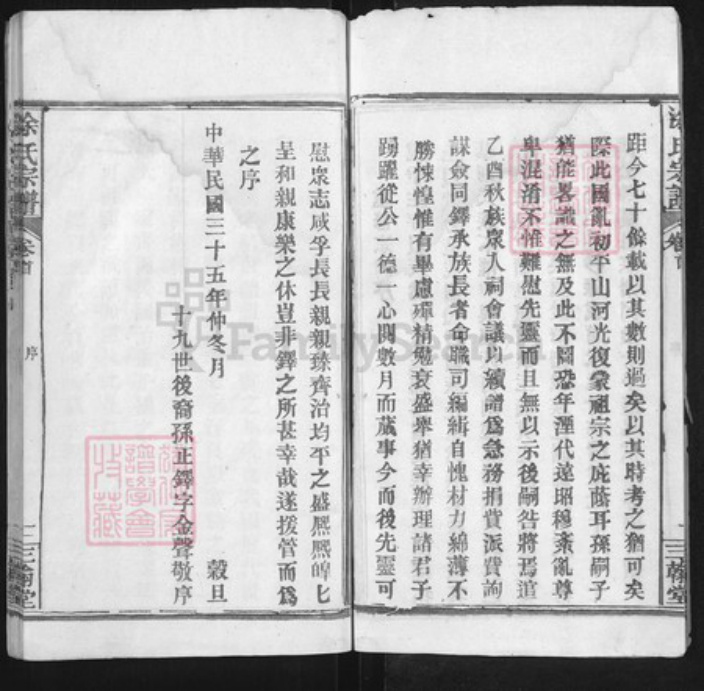 距今七十餘載以其數則過矣以其時考之猶可矣
際此國亂初平山河光復蒙祖宗之庇蔭耳孫嗣子
猶能畧識之無及此不圖恐年湮代遠昭穆紊亂尊
卑混淆不惟難慰先靈而且無以示後嗣咎將焉逭
乙酉秋族眾入祠會議以續譜爲急務捐費派費詢
謀僉同鐸承族長者命職司編緝自愧材力綿薄不
勝悚惶惟有畢慮殫精勉襄盛舉猶幸辦理諸君子
踴躍從公一德一心閱數月而蕆事今而後先靈可
慰眾志咸孚長長親親臻齊治均平之盛熙熙皡匕
呈和親康樂之休豈非鐸之所甚幸哉遂援管而爲
之序
中華民國三十五年仲冬月 穀旦
十九世後裔孫正鐸字金聲敬序
涂氏宗譜 卷首 序 二 三翰堂
FamilySearch
譜學會
特藏